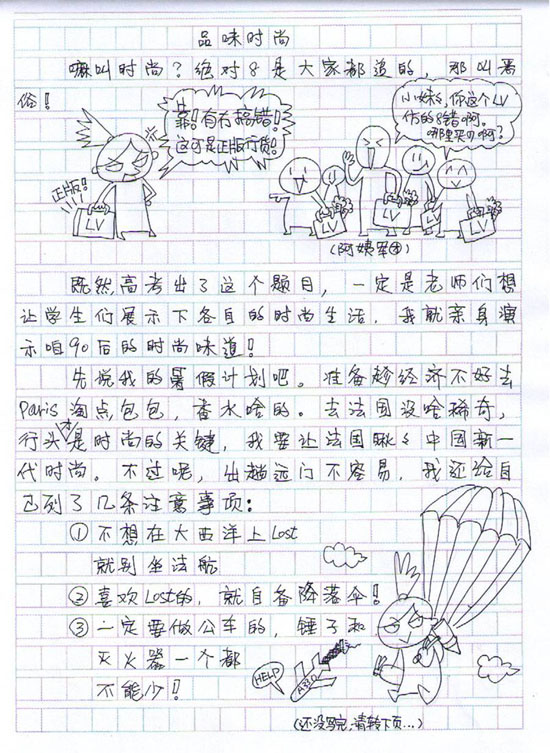 品味时尚
嘛叫时尚？绝对8是大家都追的，那叫恶
俗！
靠！有冇搞错！
这可是正版行货！
小妹妹，你这个LV
仿的8错啊。
哪里买的啊？
正版！
LV
LV
LV
LV
LV
（阿姨军团）
既然高考出了这个题目，一定是老师们想
让学生们展示下各自的时尚生活，我就亲身演
示咱90后的时尚味道！
先说我的暑假计划吧。准备趁经济不好去
Paris淘点包包，香水啥的。去法国没啥稀奇，
行头才是时尚的关键，我要让法国瞅瞅中国新一
代时尚。不过呢，出趟远门不容易，我还给自
己列了几条注意事项：
①不想在大西洋上Lost
就别坐法航
②喜欢Lost的，就自备降落伞！
③一定要做公车的，锤子和
灭火器一个都
不能少！
HELP
A330
（还没写完，请转下页...）